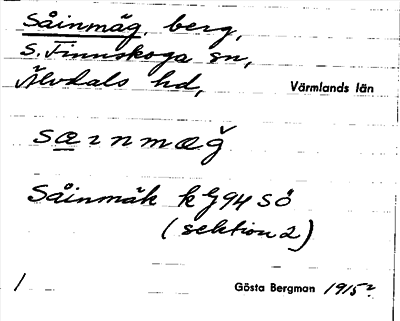 Såinmäg, berg,
S. Finnskoga sn,
Älvdals hd, Värmlands län
sæɪnmæğ
Såinmäk kG94SÖ
(sektion 2)
1 Gösta Bergman 1915?